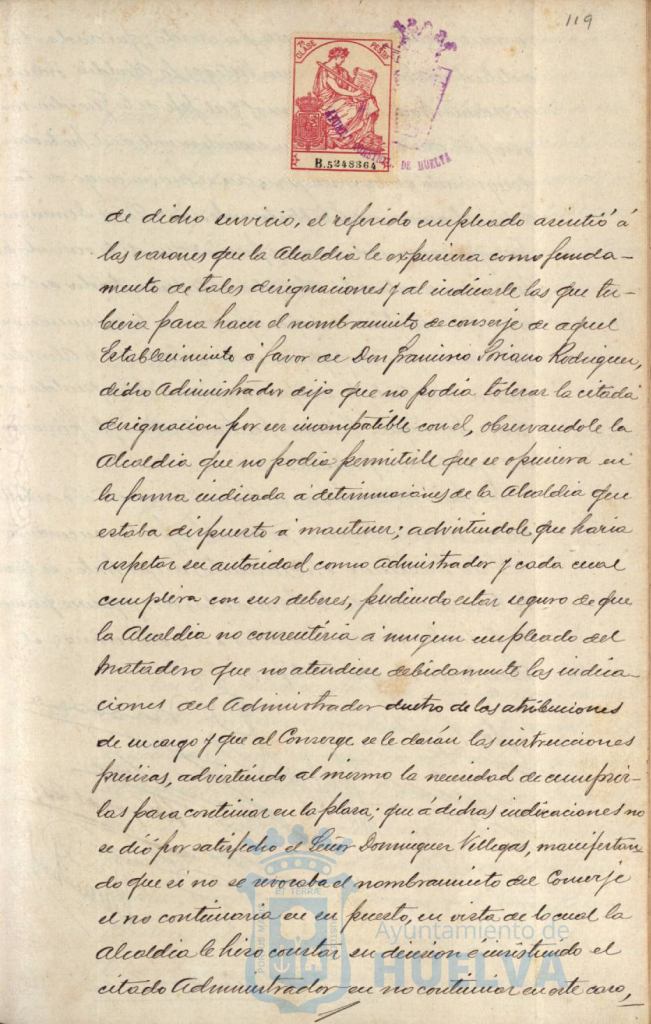 119
7ª CLASE
PESETAS
B.5248364
DE HUELVA
de dicho servicio, el referido empleado asintió á
las razones que la Alcaldia le expusiera como funda-
mento de tales designaciones y al indicarle las que tu-
biera para hacer el nombramiento de conserje de aquel
Establecimiento á favor de Don Francisco Soriano Rodriguez,
dicho Administrador dijo que no podia tolerar la citada
designacion por ser incompatible con el, observandole la
Alcaldia que no podia permitirle que se opusiera en
la forma indicada á determinaciones de la Alcaldia que
estaba dispuesto á mantener; advirtiendole que haria
respetar su autoridad como Administrador y cada cual
cumpliera con sus deberes, pudiendo estar seguro de que
la Alcaldia no consentiria á ningun empleado del
Matadero que no atendiese debidamente las indica-
ciones del Administrador dentro de las atribuciones
de su cargo y que al Conserge se le darán las instrucciones
precisas, advirtiendo al mismo la necesidad de cumplir-
las para continuar en la plaza; que á dichas indicaciones no
se dió por satisfecho el Señor Dominguez Villegas, manifestan-
do que si no se revocaba el nombramiento del Conserje
el no continuaria en su puesto, en vista de lo cual la
Alcaldia le hizo constar su decision é insistiendo el
citado Administrador en no continuar en este caso,
Ayuntamiento de
HUELVA